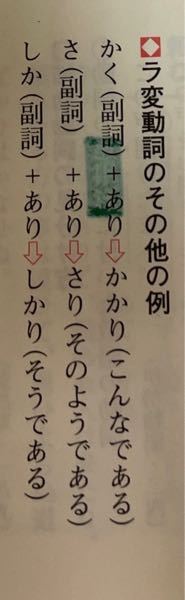 ◆ラ変動詞のその他の例
かく(副詞)+あり⇨かかり(こんなである)
さ(副詞) +あり⇨さり(そのようである)
しか(副詞)+あり⇨しかり(そうである)